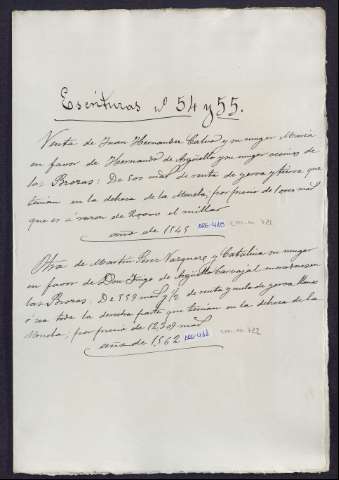 Escrituras nº 54 y 55.
Venta de Juan Hernandez Calvo y su muger Maria
en favor de Hernando de Argüello y su muger vecinos de
las Brozas: De 500 mrs de renta de yerva y tierra que
tenian en la dehesa de la Mucla; por precio de
que es á razon de 20000 el millar
año de 1545
Otra de Martin Perez Vazquez, y Catalina su muger
en favor de Don Diego de Argüello Carvajal
las Brozas. De 559 mrs y ½ de renta y de yerva
ó sea toda la derecha parte que tenian en la dehesa de la
Mucla; por precio de 12,309 mrs
año de 1562